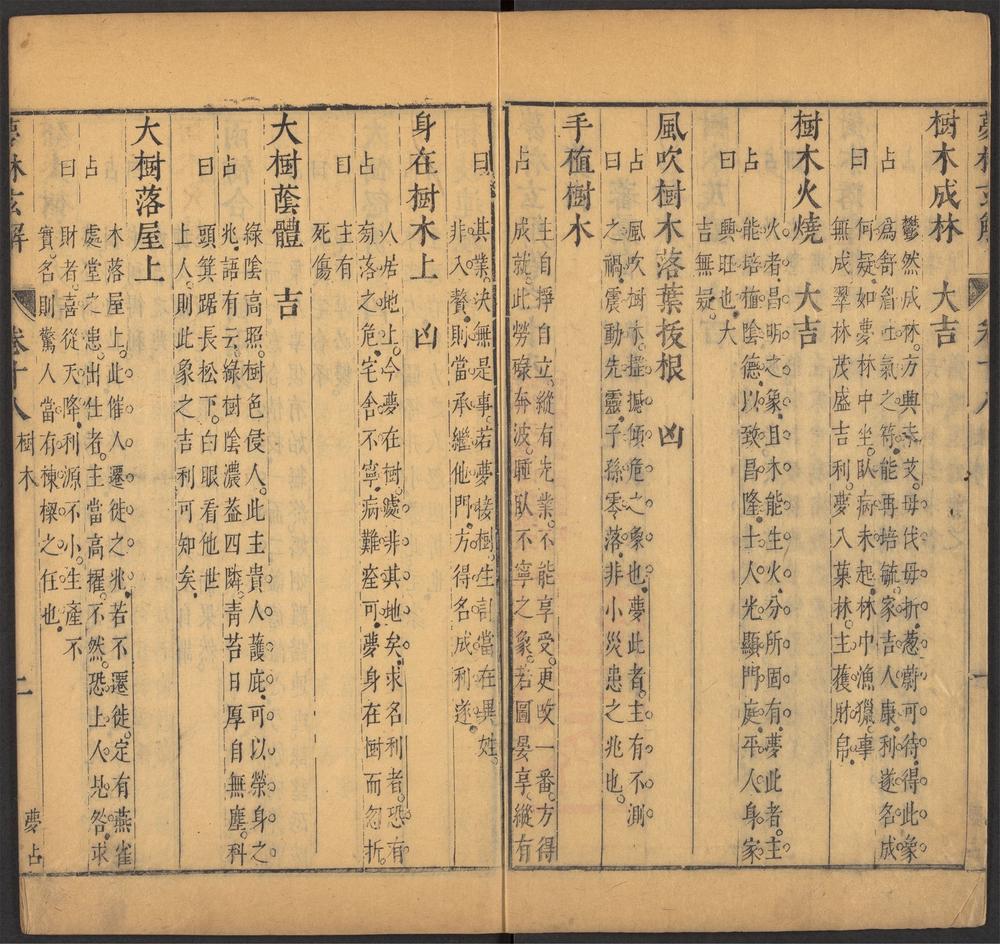 樹木成林　大吉
占曰
鬱然成林。方興未艾。毋伐毋折。葱蔚可待。得此象
爲舒眉吐氣之符。能再培毓。家吉人康。利遂名成
何疑。如夢林中坐臥。病未起。林中漁獵。事
無成。翠林茂盛吉利。夢入菓林。主獲財帛。
樹木火燒　大吉
占曰
火者昌明之象。且木能生火。分所固有。夢此者。主
能培植陰德。以致昌隆。士人光顯門庭。平人身家
興旺也。大
吉無疑。
風吹樹木落葉拔根　凶
占曰
風吹樹木。搖撼傾危之象也。夢此者。主有不測
之禍。震動先靈。子孫零落。非小災患之兆也。
手植樹木
占
主自掙自立。縱有先業。不能享受。更改一番。方得
成就。此勞碌奔波。睡臥不寧之象。若圖晏享。縱有
曰
其業。決無是事。若夢接樹。生計當在異姓。
非入贅。則當承繼他門。方得名成利遂。
身在樹木上　凶
占曰
人居地上。今夢在樹。處非其地矣。求名利者。恐有
旁落之危。宅舍不寧。病難痊可。夢身在樹而忽折。
主有
死傷
大樹蔭體　吉
占曰
綠陰高照。樹色侵人。此主貴人護庇。可以榮身之
兆。語有云。綠樹陰濃葢四隣。青苔日厚自無塵。科
頭箕踞長松下。白眼看他世
上人。則此象之吉利可知矣。
大樹落屋上
占曰
木落屋上。此催人遷徙之兆。若不遷徙。定有燕雀
處堂之患。出仕者。主當高擢。不然。恐上人見咎。求
財者。喜從天降。利源不小。生產不
實。名則驚人。當有棟樑之任也。
夢林玄解　卷十八　樹木　二　夢占